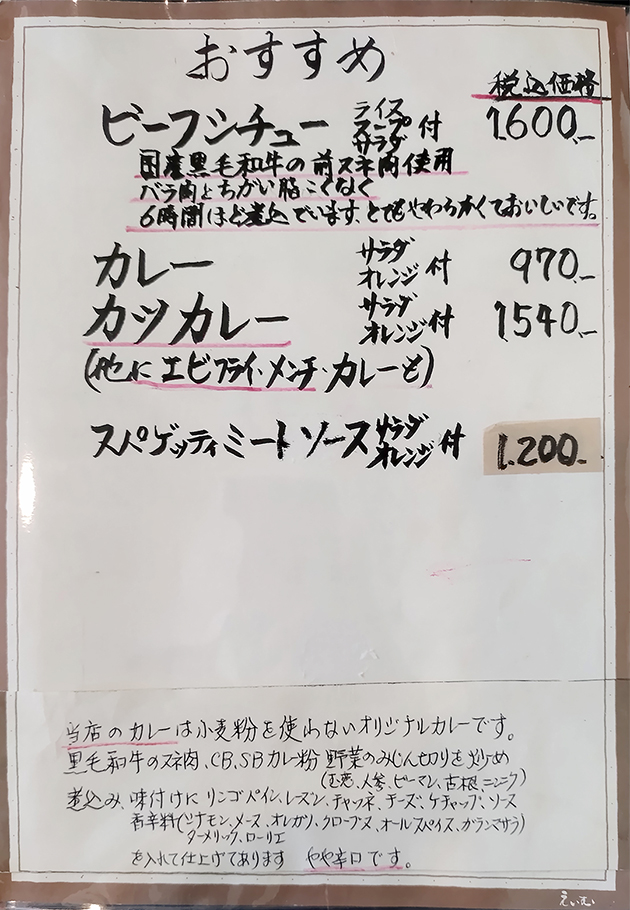 おすすめ
税込価格
ビーフシチュー ライス スープ サラダ 付 1,600.-
国産黒毛和牛の前スネ肉使用
バラ肉とちがい脂こくなく
6時間ほど煮込でいます、とてもやわらかくておいしいです。
カレー サラダ オレンジ 付 970.-
カツカレー サラダ オレンジ 付 1540.-
(他にエビフライ・メンチ・カレーも)
スパゲッティミートソース サラダ オレンジ 付 1,200.-
当店のカレーは小麦粉を使わないオリジナルカレーです。
黒毛和牛のスネ肉、CB、SBカレー粉 野菜のみじん切りを炒め
(玉葱、人参、ピーマン、古根、ニンニク)
煮込み、味付けに リンゴ パイン、レーズン、チャツネ、チーズ、ケチャップ、ソース
香辛料(シナモン、メース、オレガノ、クローブス、オールスパイス、ガランマサラ)
ターメリック、ローリエ
を入れて仕上げてあります やや辛口です。
えいむ